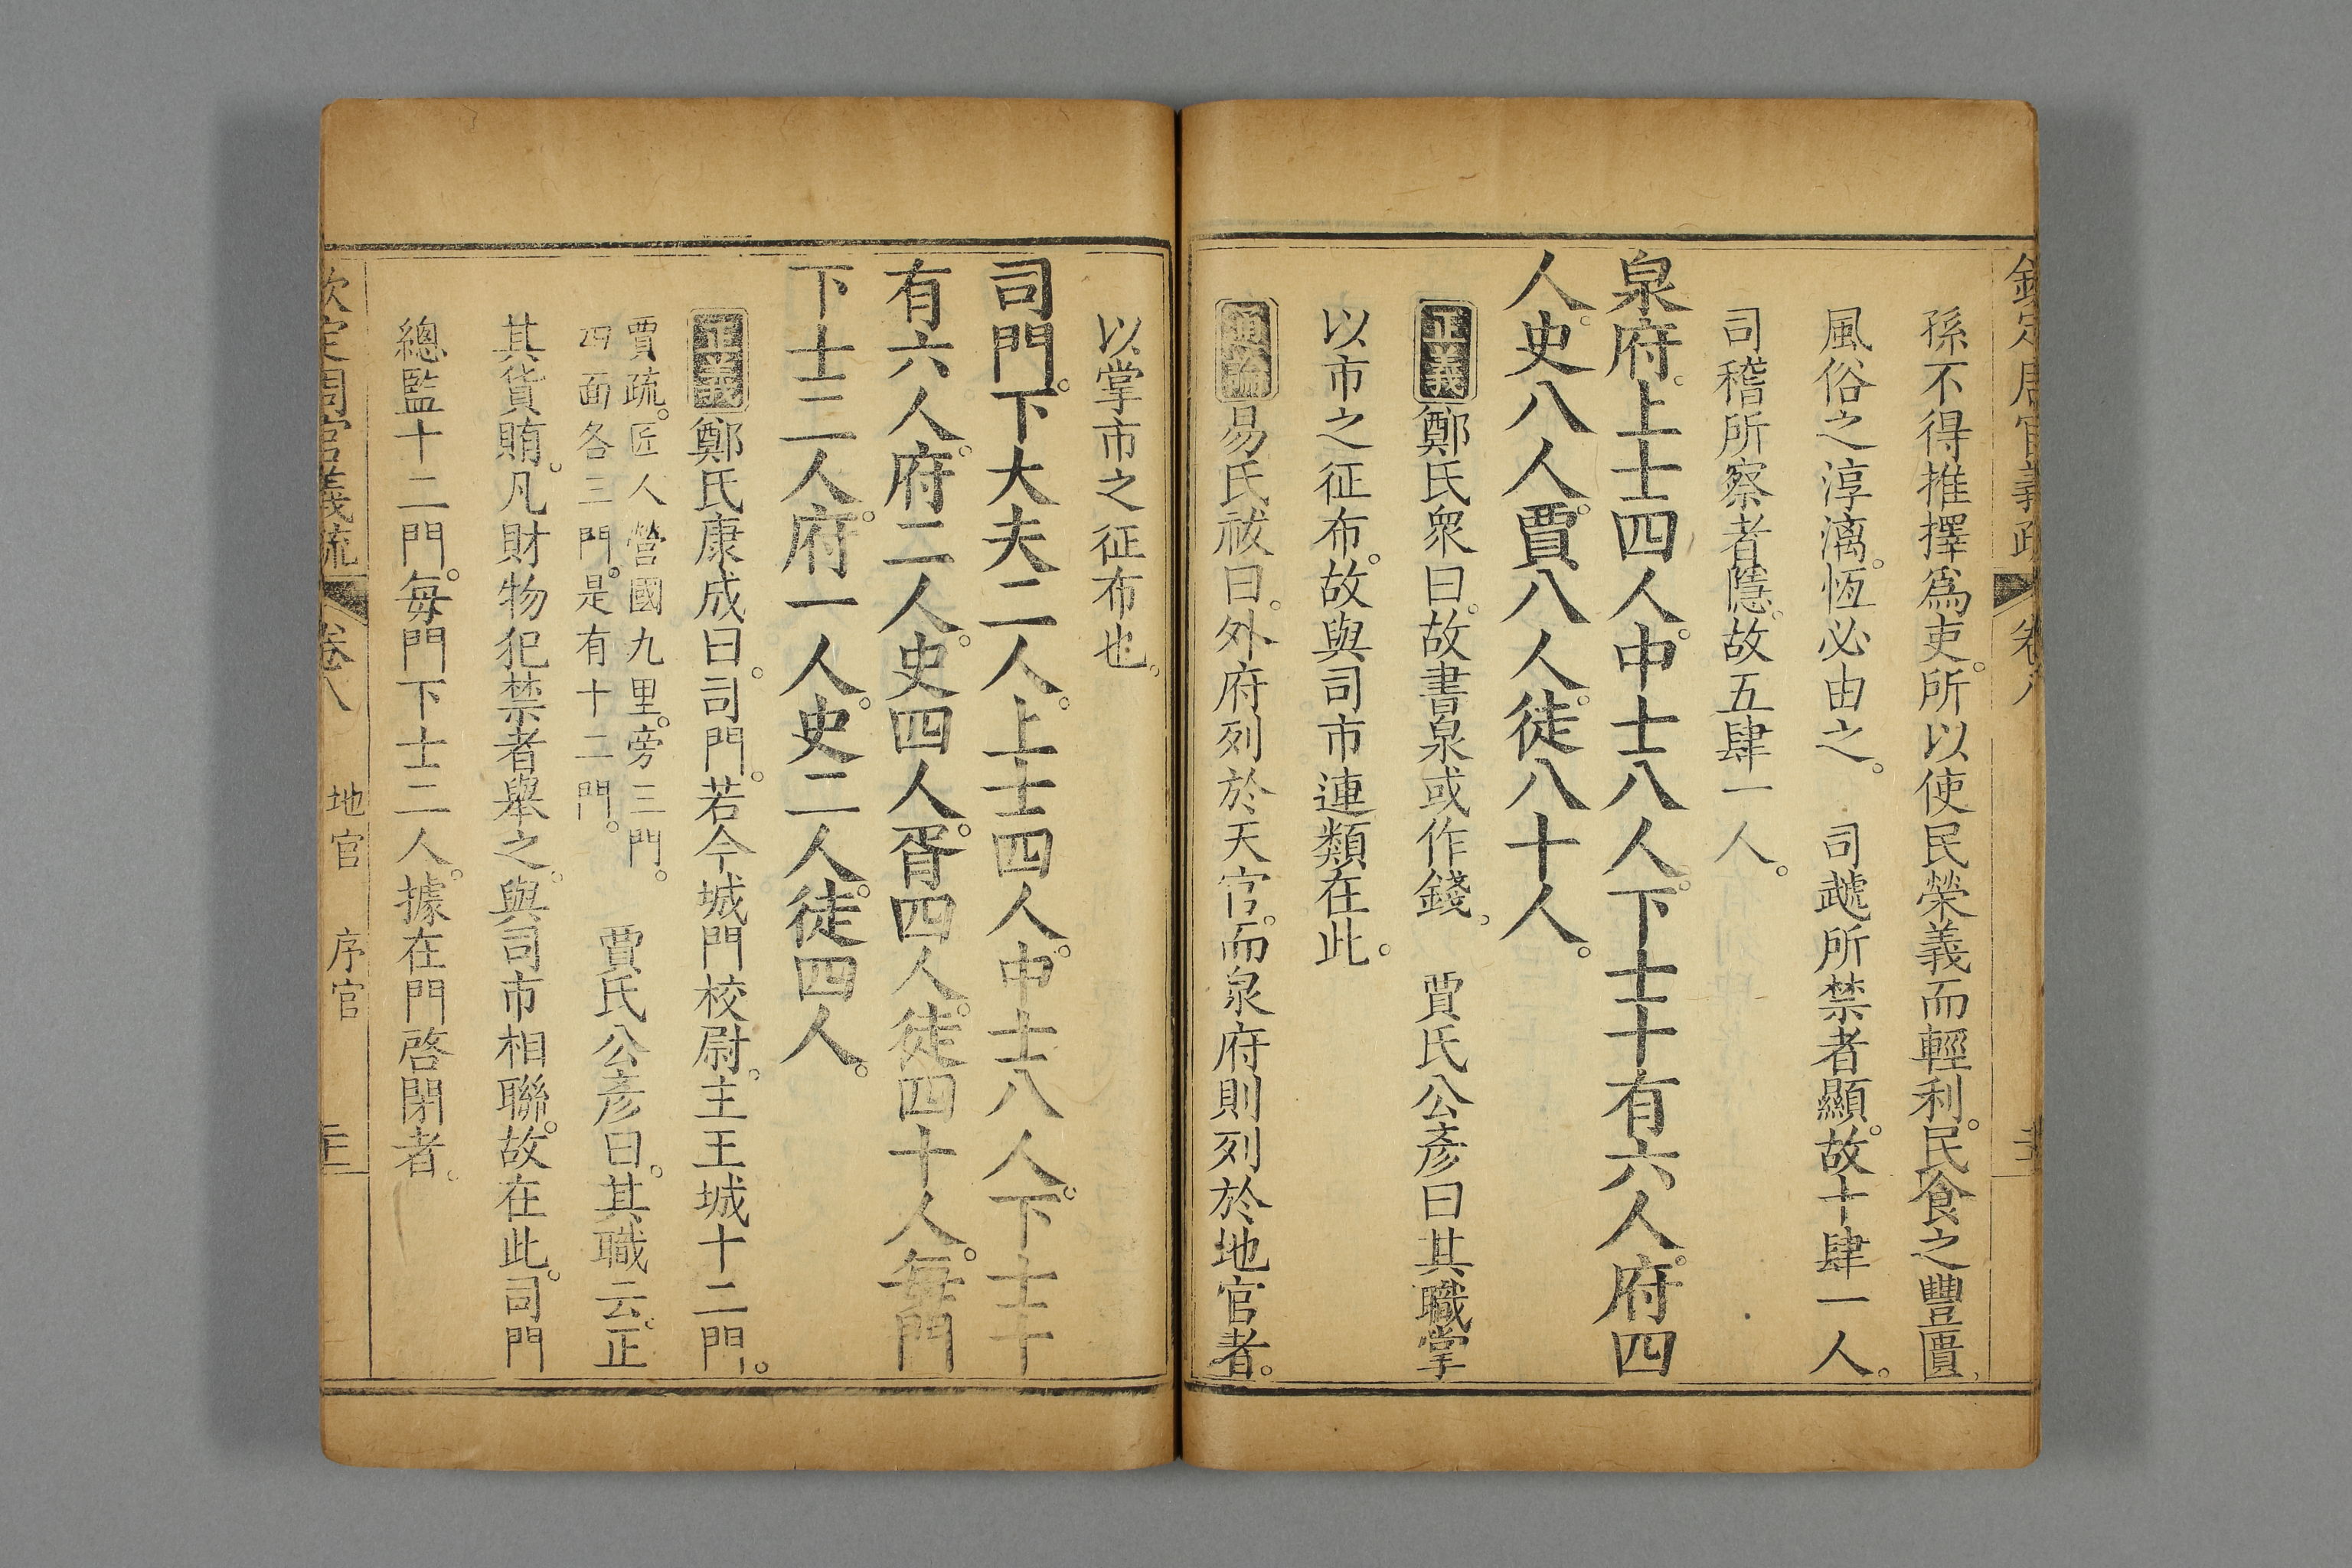 欽定周官義疏 卷八
孫不得推擇爲吏。所以使民榮義而輕利。民食之豐匱、
風俗之淳漓。恆必由之。 司虣所禁者顯。故十肆一人。
司稽所察者隱。故五肆一人。
泉府。上士四人。中士八人。下士十有六人。府四
人。史八人。賈八人。徒八十人。
正義鄭氏衆曰。故書泉或作錢。 賈氏公彥曰其職掌
以市之征布。故與司市連類在此。
通論易氏祓曰。外府列於天官。而泉府則列於地官者。
以掌市之征布也。
司門。下大夫二人。上士四人。中士八人。下士十
有六人。府二人。史四人。胥四人。徒四十人。每門
下士二人。府一人。史二人。徒四人。
正義鄭氏康成曰。司門。若今城門校尉。主王城十二門。
賈疏。匠人營國九里。旁三門。
四面各三門。是有十二門。
賈氏公彥曰。其職云。正
其貨賄。凡財物犯禁者舉之。與司市相聯。故在此。司門
總監十二門。每門下士二人。據在門啓閉者。
欽定周官義疏 卷八 地官 序官